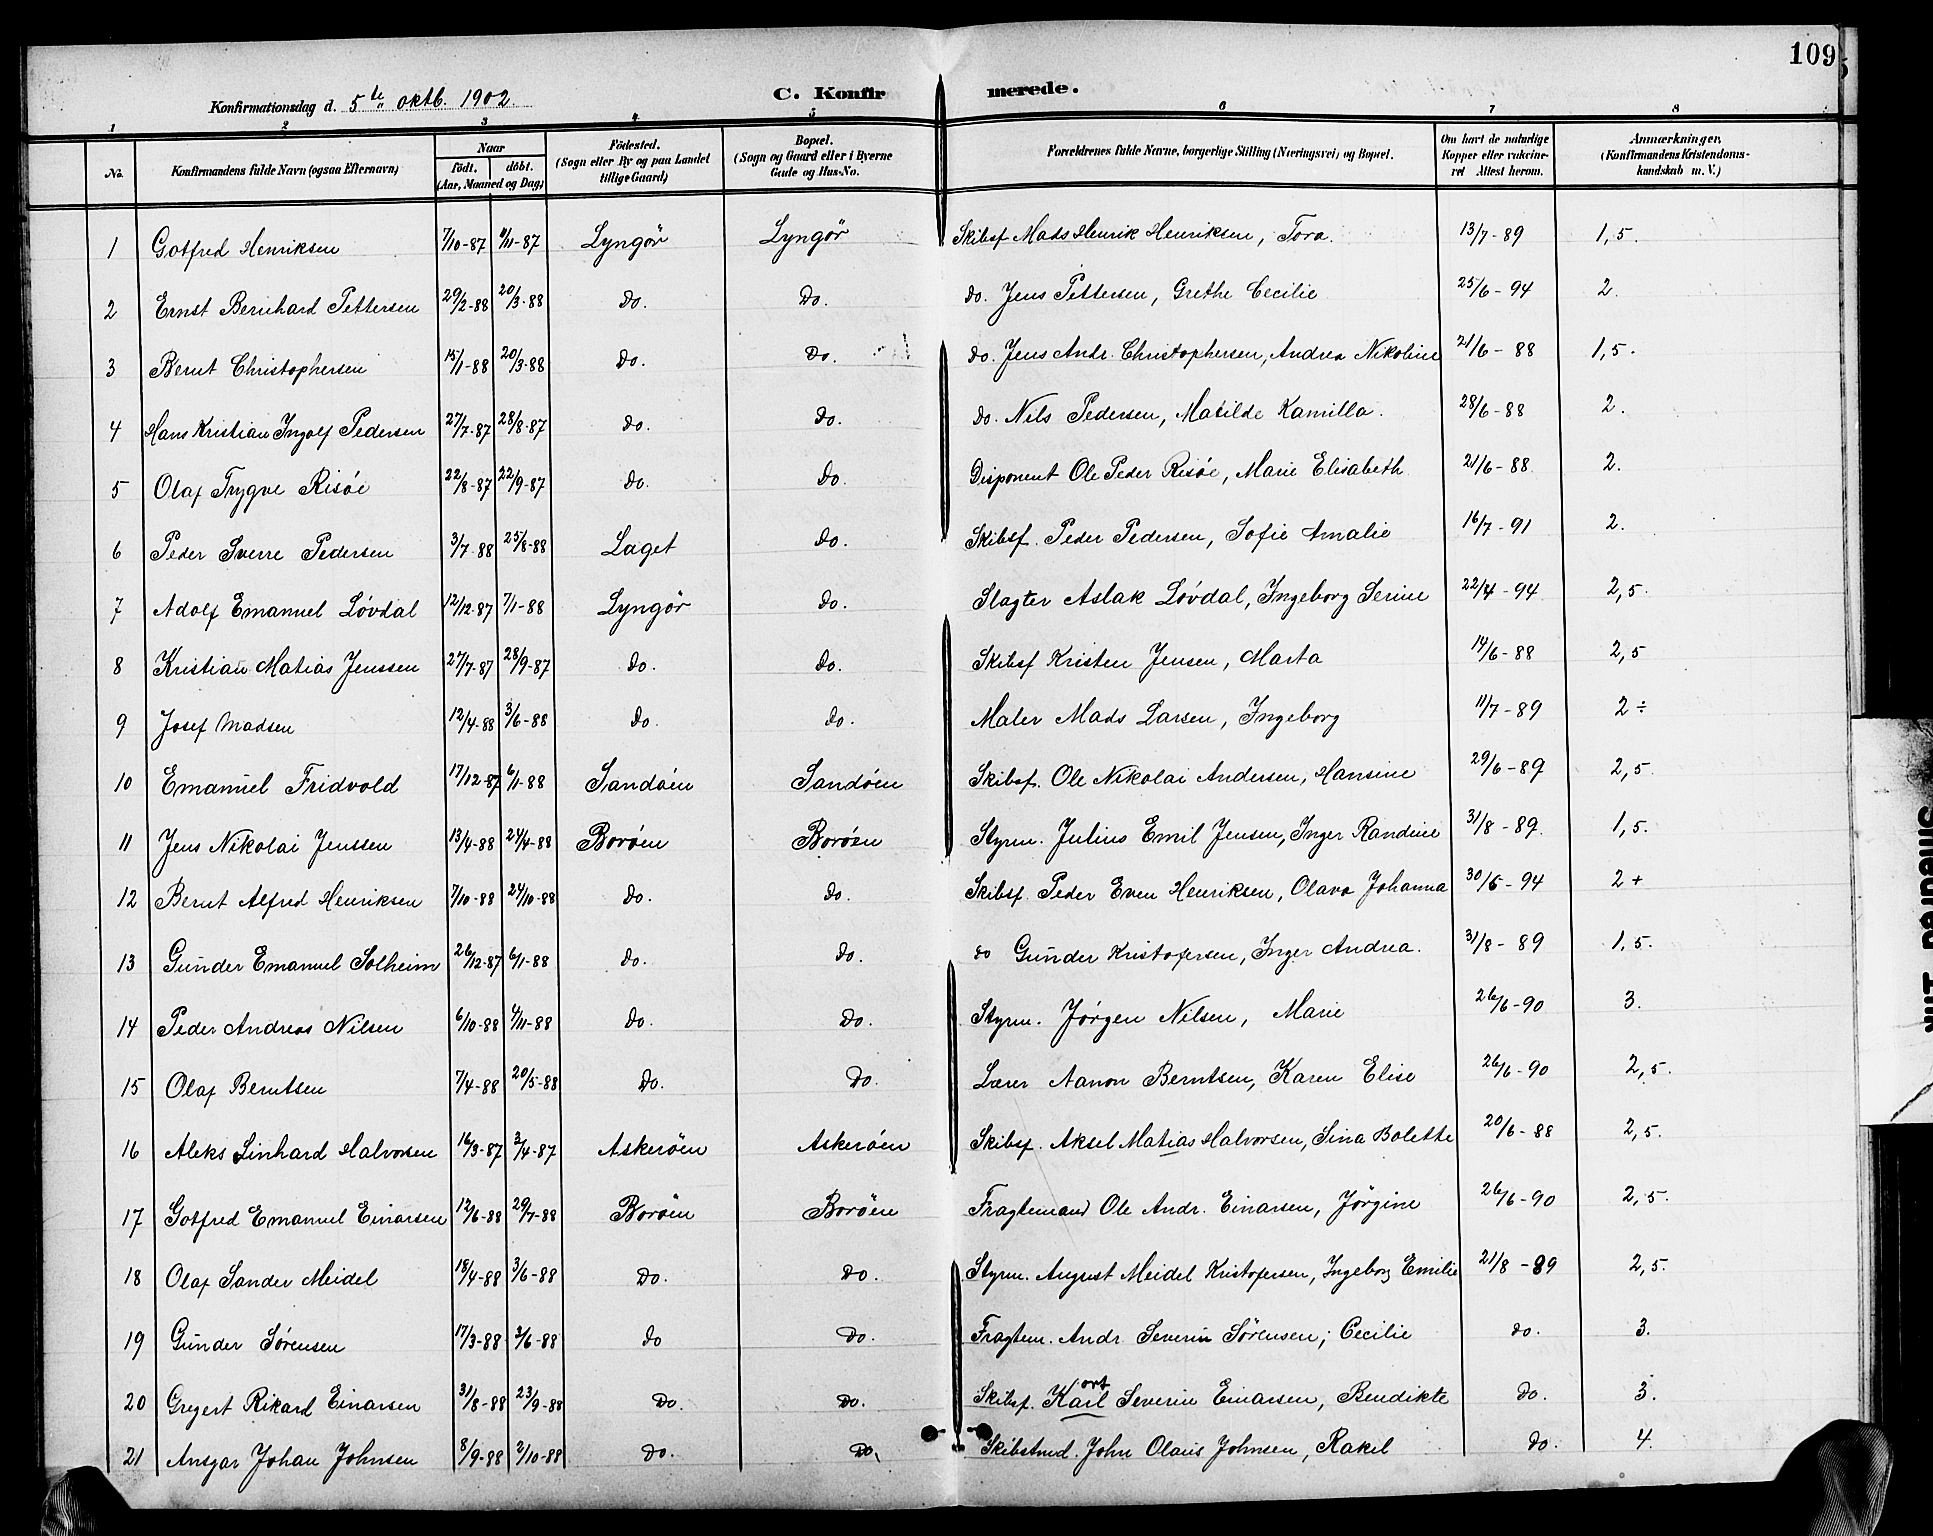 109
Konfirmationsdag d. 5te oktb. 1902. C. Konfirmerede.
1 2 3 4 5 6 7 8
No. Konfirmandens fulde Navn (ogsaa Efternavn) Naar födt. döbt. (Aar, Maaned og Dag) Födested. (Sogn eller By og paa Landet tillige Gaard) Bopæl. (Sogn og Gaard eller i Byerne Gade og Hus-No. Forældrenes fulde Navne, borgerlige Stilling (Næringsvei) og Bopæl. Om havt de naturlige Kopper eller vakcineret Attest herom. Anmærkninger. (Konfirmandens Kristendomskundskab m. V.)
1 Gotfred Henriksen 7/10-87 6/11-87 Lyngör Lyngör Skibsf Mads Henrik Henriksen, Tora. 13/7-89 1,5.
2 Ernst Bernhard Pettersen 29/2-88 20/3-88 do. do. do. Jens Pettersen, Grethe Cecilie 25/6-94 2.
3 Bernt Christophersen 15/1-88 20/3-88 do. do. do. Jens Andr. Christophersen, Andrea Nikoline 21/6-88 1,5.
4 Hans Kristian Ingolf Pedersen 27/7-87 28/8-87 do. do. do. Nils Pedersen, Matilde Kamilla. 28/6-88 2.
5 Olaf Trygve Risøe 22/8-87 22/9-87 do. do. Disponent Ole Peder Risøe, Marie Elisabeth 21/6-88 2.
6 Peder Sverre Pedersen 3/7-88 25/8-88 Laget do. Skibsf. Peder Pedersen, Sofie Amalie 16/7-91 2.
7 Adolf Emanuel Løvdal 12/12-87 7/1-88 Lyngör do. Slagter Aslak Løvdal, Ingeborg Serine 22/4-94 2,5.
8 Kristian Matias Jenssen 27/7-87 28/9-87 do. do. Skibsf Kristen Jensen, Marta 14/6-88 2,5
9 Josef Madsen 12/4-88 3/6-88 do. do. Maler Mads Larsen, Ingeborg 11/7-89 2 ÷
10 Emanuel Fridvold 17/12-87 6/1-88 Sandøen Sandøen Skibsf. Ole Nikolai Andersen, Hansine 29/6-89 2,5.
11 Jens Nikolai Jenssen 13/4-88 24/4-88 Borøen Borøen Styrm. Julius Emil Jensen, Inger Randine 31/8-89. 1,5.
12 Bernt Alfred Henriksen 7/10-88 24/10-88 do. do. Skibsf. Peder Even Henriksen, Olava Johanna 30/5-94 2+
13 Gunder Emanuel Solheim 26/12-87 6/1-88 do. do. do Gunder Kristofersen, Inger Andrea. 31/8-89 1,5.
14 Peder Andreas Nilsen 6/10-88 4/11-88 do. do. Styrm. Jørgen Nilsen, Marie 26/6-90 3.
15 Olaf Berntsen 7/4-88 20/5-88 do. do. Lærer Aanon Berntsen, Karen Elise 26/6-90 2,5.
16 Aleks Linhard Halvorsen 16/3-87 3/4-87 Askerøen Askerøen Skibsf. Aksel Matias Halvorsen, Sina Bolette 20/6-88 2,5.
17 Gotfred Emanuel Einarsen 12/6-88 29/7-88 Borøen Borøen Fragtemand Ole Andr. Einarsen, Jørgine 26/6-90 2,5.
18 Olaf Sander Meidel 18/4-88 3/6-88 do. do. Styrm. August Meidel Kristofersen, Ingeborg Emilie 21/8-89 2,5.
19 Gunder Sørensen 17/3-88 3/6-88 do do. Fragtem. Andr. Severin Sørensen, Cecilie do. 3.
20 Gregert Rikard Einarsen 31/8-88 23/9-88 do. do. Skibsf. Karl ort Severin Einarsen, Bendikte do. 3.
21 Ansgar Johan Johnsen 8/9-88 2/10-88 do. do. Skibstmd. John Olaus Johnsen, Rakel do. 4.